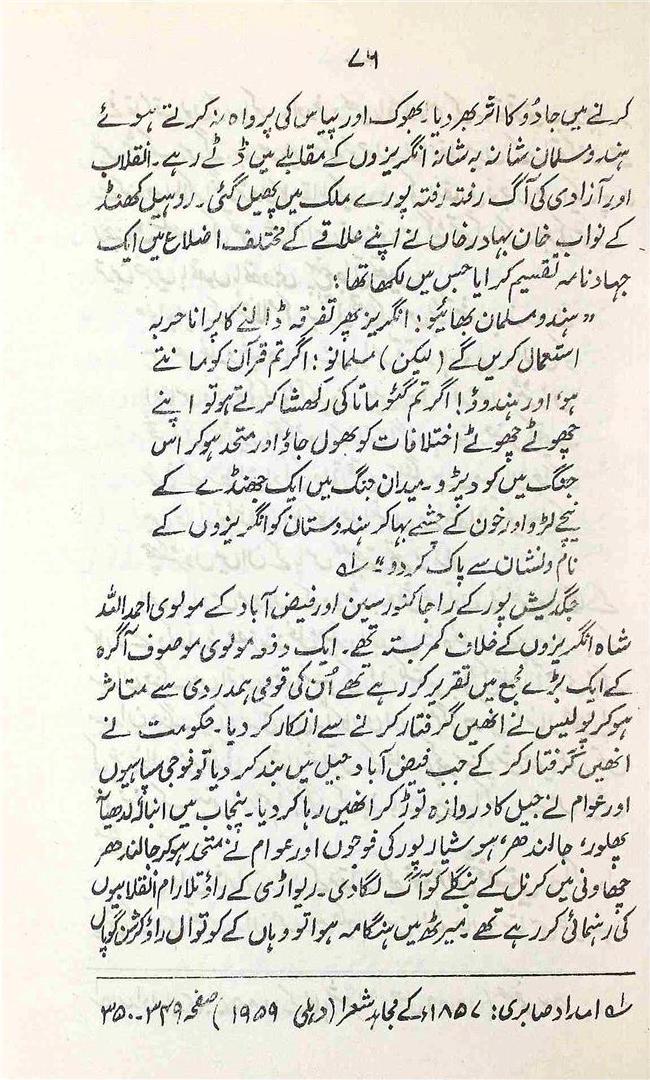 ۷۶
کرنے میں جادُو کا اثر بھر دیا۔ بھوک اور پیاس کی پرواہ نہ کرتے ہوئے
ہندو مسلمان شانہ بہ شانہ انگریزوں کے مقابلے میں ڈٹے رہے۔ انقلاب
اور آزادی کی آگ رفتہ رفتہ پورے ملک میں پھیل گئی۔ روہیل کھنڈ
کے نواب خان بہادر خاں نے اپنے علاقے کے مختلف اضلاع میں ایک
جہاد نامہ تقسیم کرایا جس میں لکھا تھا :
” ہندو مسلمان بھائیو! انگریز پھر تفرقہ ڈالنے کا پرانا حربہ
استعمال کریں گے (لیکن) مسلمانو! اگر تم قرآن کو مانتے
ہو، اور ہندوؤ! اگر تم گئو ماتا کی رکھشا کرتے ہو تو اپنے
چھوٹے چھوٹے اختلافات کو بھول جاؤ اور متحد ہو کر اس
جنگ میں کود پڑو۔ میدان جنگ میں ایک جھنڈے کے
نیچے لڑو اور خون کے چشمے بہا کر ہندوستان کو انگریزوں کے
نام و نشان سے پاک کر دو“ ؎۱
جگدیش پور کے راجا کنور سین اور فیض آباد کے مولوی احمد اللہ
شاہ انگریزوں کے خلاف کمر بستہ تھے۔ ایک دفعہ مولوی موصوف آگرہ
کے ایک بڑے مجمع میں تقریر کر رہے تھے اُن کی قومی ہمدردی سے متاثر
ہو کر پولیس نے انھیں گرفتار کرنے سے انکار کر دیا۔ حکومت نے
انھیں گرفتار کر کے جب فیض آباد جیل میں بند کر دیا تو فوجی سپاہیوں
اور عوام نے جیل کا دروازہ توڑ کر انھیں رہا کر دیا۔ پنجاب میں انبالہ لدھیانہ
پھلور، جالندھر، ہوشیار پور کی فوجوں اور عوام نے متحد ہو کر جالندھر
چھاونی میں کرنل کے بنگلے کو آگ لگا دی۔ ریواڑی کے راؤ تلا رام انقلابیوں
کی رہنمائی کر رہے تھے۔ میرٹھ میں ہنگامہ ہوا تو وہاں کے کوتوال راؤ کرشن گوپال
؎۱ امداد صابری: ۱۸۵۷ء کے مجاہد شعرا (دہلی ۱۹۵۹) صفحہ ۳۴۹-۳۵۰